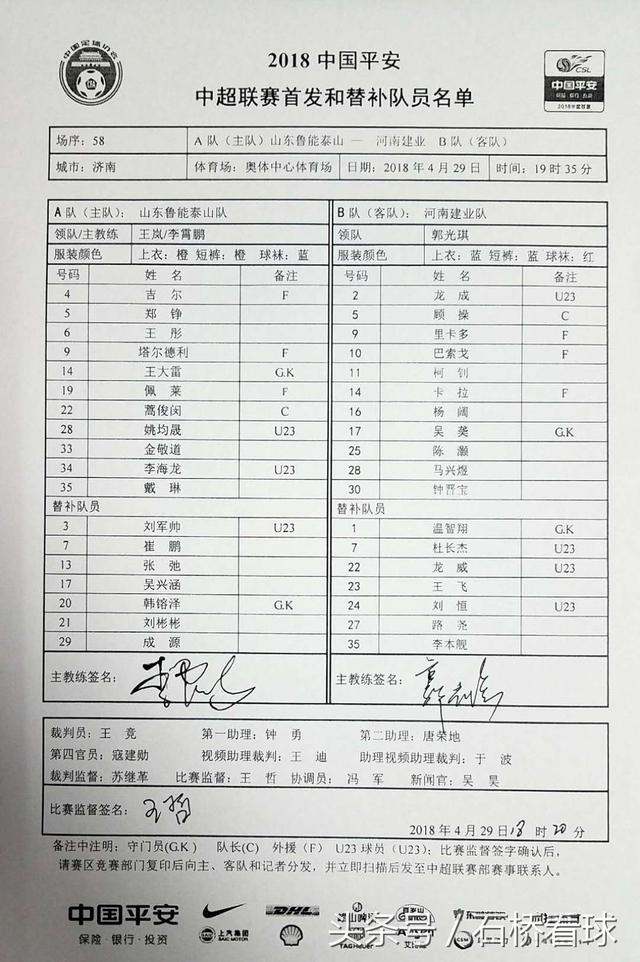 中国足球协会
2018 中国平安
中超联赛首发和替补队员名单
CSL
中国平安
保险·银行·投资
场序：58 A 队（主队）山东鲁能泰山 — 河南建业 B 队（客队）
城市：济南 体育场：奥体中心体育场 日期：2018 年 4 月 29 日 时间：19 时 35 分
A 队（主队）： 山东鲁能泰山队 B 队（客队）： 河南建业队
领队/主教练 王岚/李霄鹏 领队 郭光琪
服装颜色 上衣：橙 短裤：橙 球袜：蓝 服装颜色 上衣：蓝 短裤：蓝 球袜：红
号码 姓 名 备注 号码 姓 名 备注
4 吉 尔 F 2 龙 成 U23
5 郑 铮 5 顾 操 C
6 王 彤 9 里卡多 F
9 塔尔德利 F 10 巴索戈 F
14 王大雷 G.K 11 柯 钊
19 佩 莱 F 14 卡 拉 F
22 蒿俊闵 C 16 杨 阔
28 姚均晟 U23 17 吴 龑 G.K
33 金敬道 25 陈 灏
34 李海龙 U23 28 马兴煜
35 戴 琳 30 钟晋宝
替补队员 替补队员
3 刘军帅 U23 1 温智翔 G.K
7 崔 鹏 7 杜长杰 U23
13 张 弛 22 龙 威 U23
17 吴兴涵 23 王 飞
20 韩镕泽 G.K 24 刘 恒 U23
21 刘彬彬 27 路 尧
29 成 源 35 李本舰
主教练签名： 主教练签名：
裁判员：王 竞 第一助理：钟 勇 第二助理：唐荣地
第四官员：寇建勋 视频助理裁判：王 迪 助理视频助理裁判：于 波
裁判监督：苏继革 比赛监督：王 哲 协调员： 冯 军 新闻官：吴 昊
比赛监督签名：王哲
2018 年 4 月 29 日 18 时 20 分
备注中注明：守门员(G.K) 队长(C) 外援（F） U23 球员（U23）；比赛监督签字确认后，
请赛区竞赛部门复印后向主、客队和记者分发，并立即扫描后发至中超联赛部赛事联系人。
中国平安
保险·银行·投资
DHL
上汽集团
SAIC MOTOR
TAGHeuer
头条号 / 石桥看球